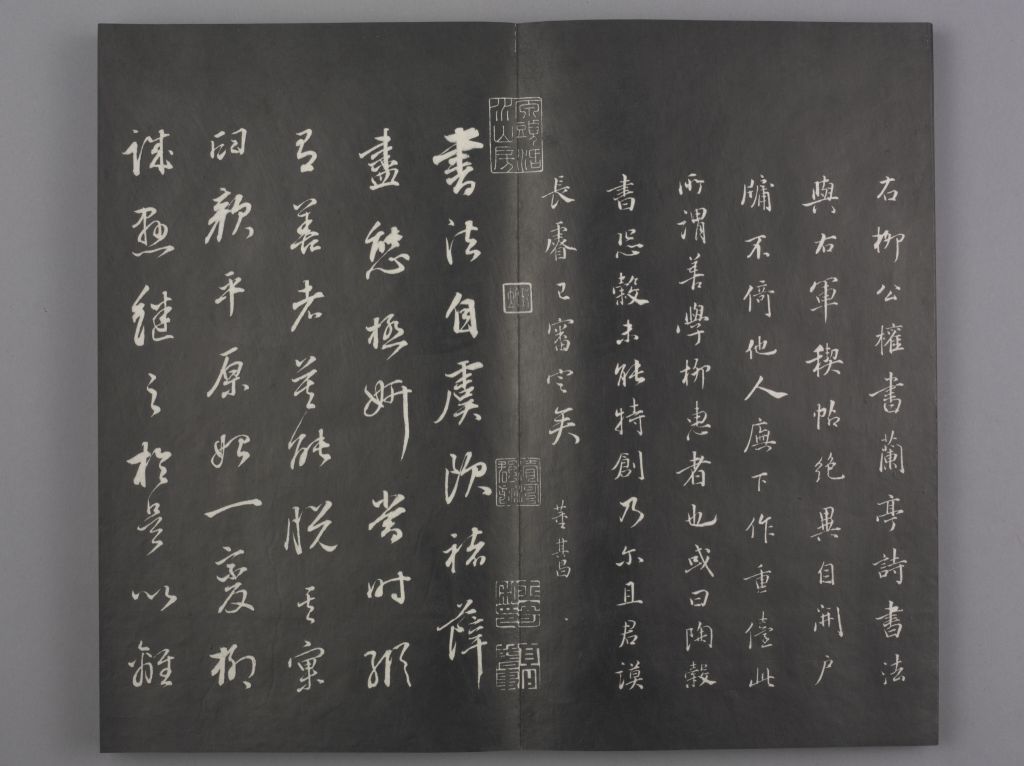 右柳公權書蘭亭詩書法
與右軍稧帖絕異自開戶
牖不倚他人廡下作重儓此
所謂善學柳惠者也或曰陶穀
書恐穀未能特創乃尔且君謨
長睿已審定矣 董其昌
書法自虞歐褚薛
盡態極妍當时縱
有善者莫能脫其窠
臼顏平原始一變柳
誠懸継之於是以離